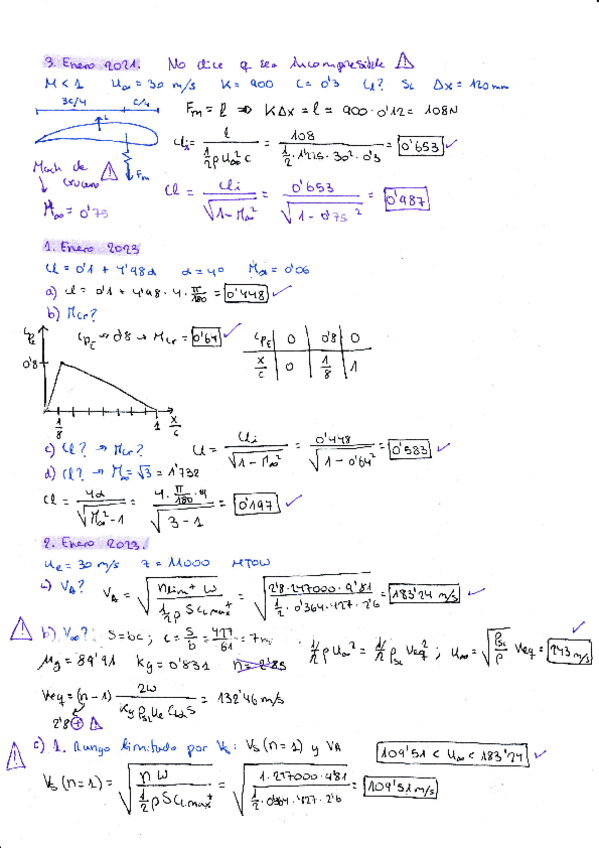 3. Enero 2021. No dice q sea Incompresible ⚠
M < 1 U∞ = 30 m/s K = 900 C = 0'3 Cl? SL Δx = 120mm
3C/4 C/4
Fm = l ⇒ KΔx = l = 900·0'12 = 108N
L
Cli = l / (1/2 ρ U∞² c) = 108 / (1/2 · 1'225 · 30² · 0'3) = 0'653 ✓
Fm
Mach de crucero ⚠
M∞ = 0'75
Cl = Cli / √(1-M∞²) = 0'653 / √(1-0'75²) = 0'987
1. Enero 2023
Cl = 0'1 + 4'98α α = 4º M∞ = 0'06
a) Cl = 0'1 + 4'98 · 4 · π/180 = 0'448 ✓
b) Mcr?
CpE
CpE → 0'8 → Mcr = 0'64 ✓
CpE 0 0'8 0
x/c 0 1/8 1
0'8
1/8 1 x/c
c) Cl? → Mcr? Cl = Cli / √(1-M∞²) = 0'448 / √(1-0'64²) = 0'583 ✓
d) Cl? → M∞ = √3 = 1'732
Cl = 4α / √(M∞²-1) = 4 · π/180 · 4 / √(3-1) = 0'197 ✓
2. Enero 2023.
Ue = 30 m/s z = 11000 MTOW
a) VA? VA = √(nlim+ W / (1/2 ρ S CLmax+)) = √(2'8·247000·9'81 / (1/2 · 0'364·427·2'6)) = 183'24 m/s ✓
⚠ b) V∞? S = bc; c = S/b = 427/61 = 7m 1/2 ρ U∞² = 1/2 ρSL Veq²; U∞ = √(ρSL/ρ) Veq = 243 m/s ✓
μg = 89'91 Kg = 0'831 n = 2'85
Veq = (n-1) 2W / (Kg ρSL Ue CLα S) = 132'46 m/s
2'8 + ⚠
⚠ c) 1. Rango limitado por Vs: Vs (n=1) y VA 109'51 < U∞ < 183'24 ✓
Vs (n=1) = √(n W / (1/2 ρ S CLmax+)) = √(1·247000·9'81 / (1/2 · 0'364 · 427 · 2'6)) = 109'51 m/s